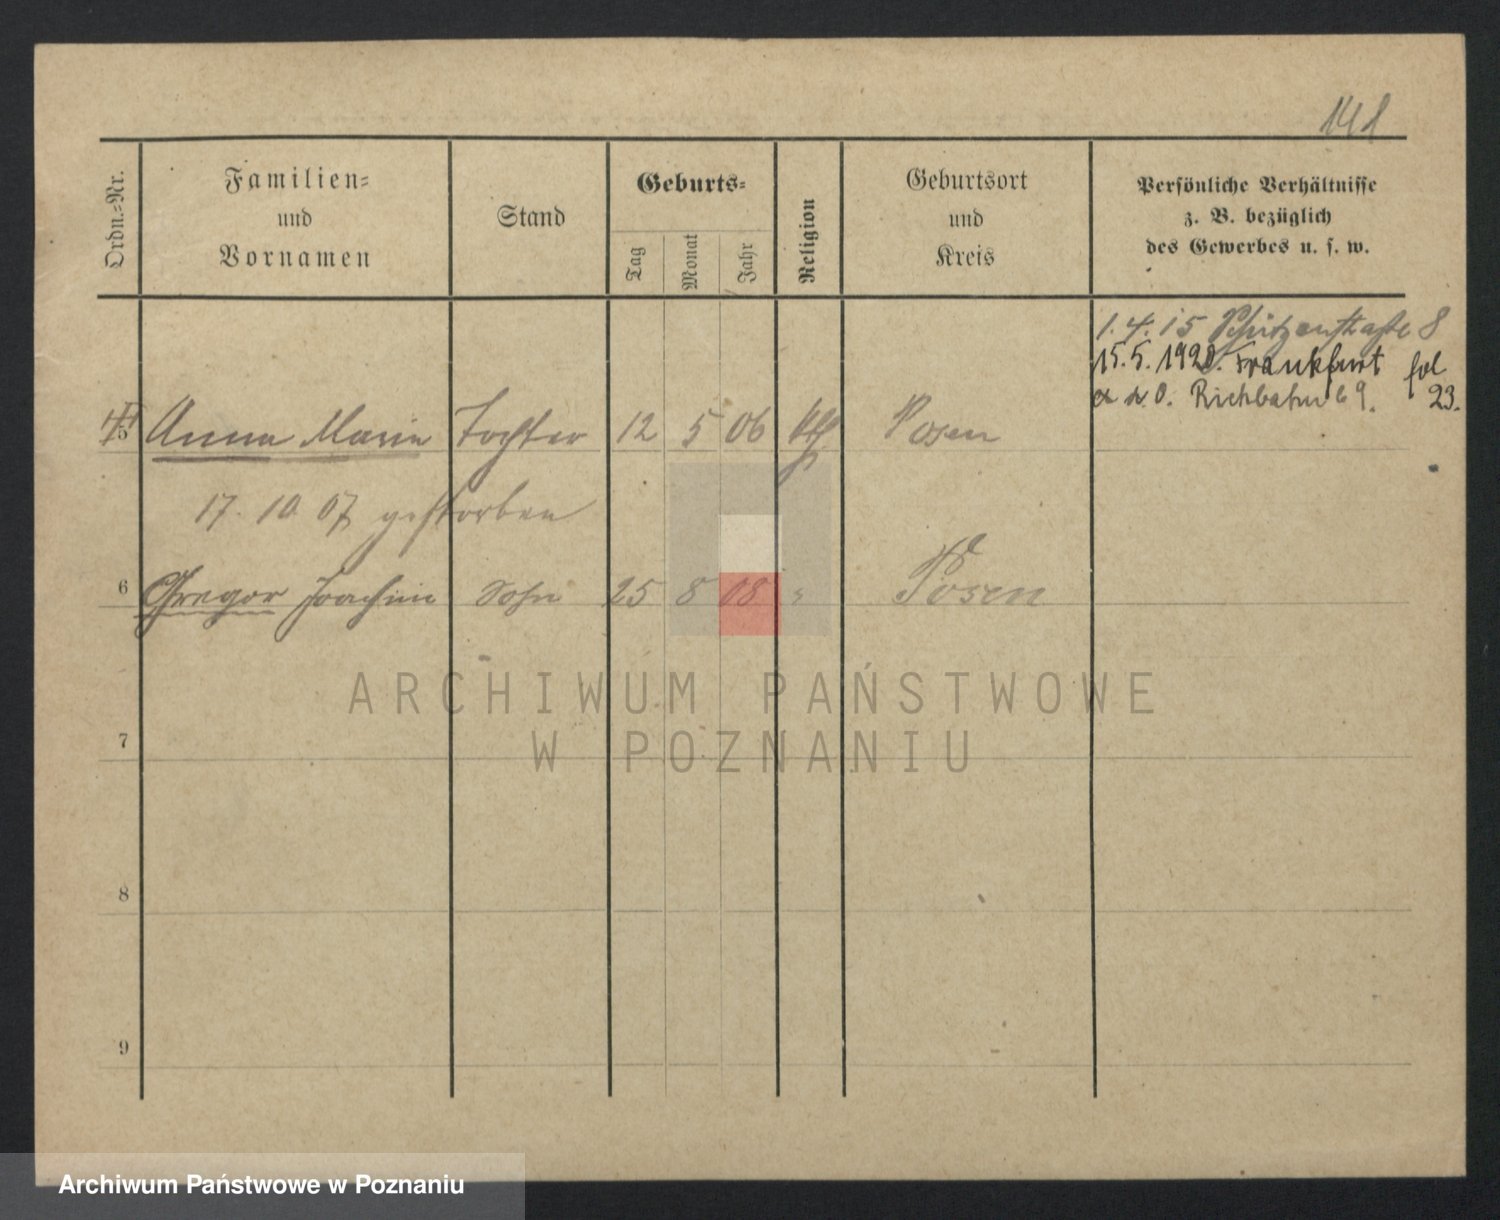 141
Ordn.=Nr.
Familien=
und
Vornamen
Stand
Geburts=
Tag
Monat
Jahr
Religion
Geburtsort
und
Kreis
Persönliche Verhältnisse
z. B. bezüglich
des Gewerbes u. s. w.
1.4.15 Schützenstraße 8
15.5.1920. Frankfurt
a d O. 69. fol
23.
5 Anna Marie Tochter 12 5 06 kth Posen
17. 10 07 gestorben
6 Gregor Joachim Sohn 25 8 08 " Posen
7
8
9
ARCHIWUM PAŃSTWOWE
W POZNANIU
Archiwum Państwowe w Poznaniu